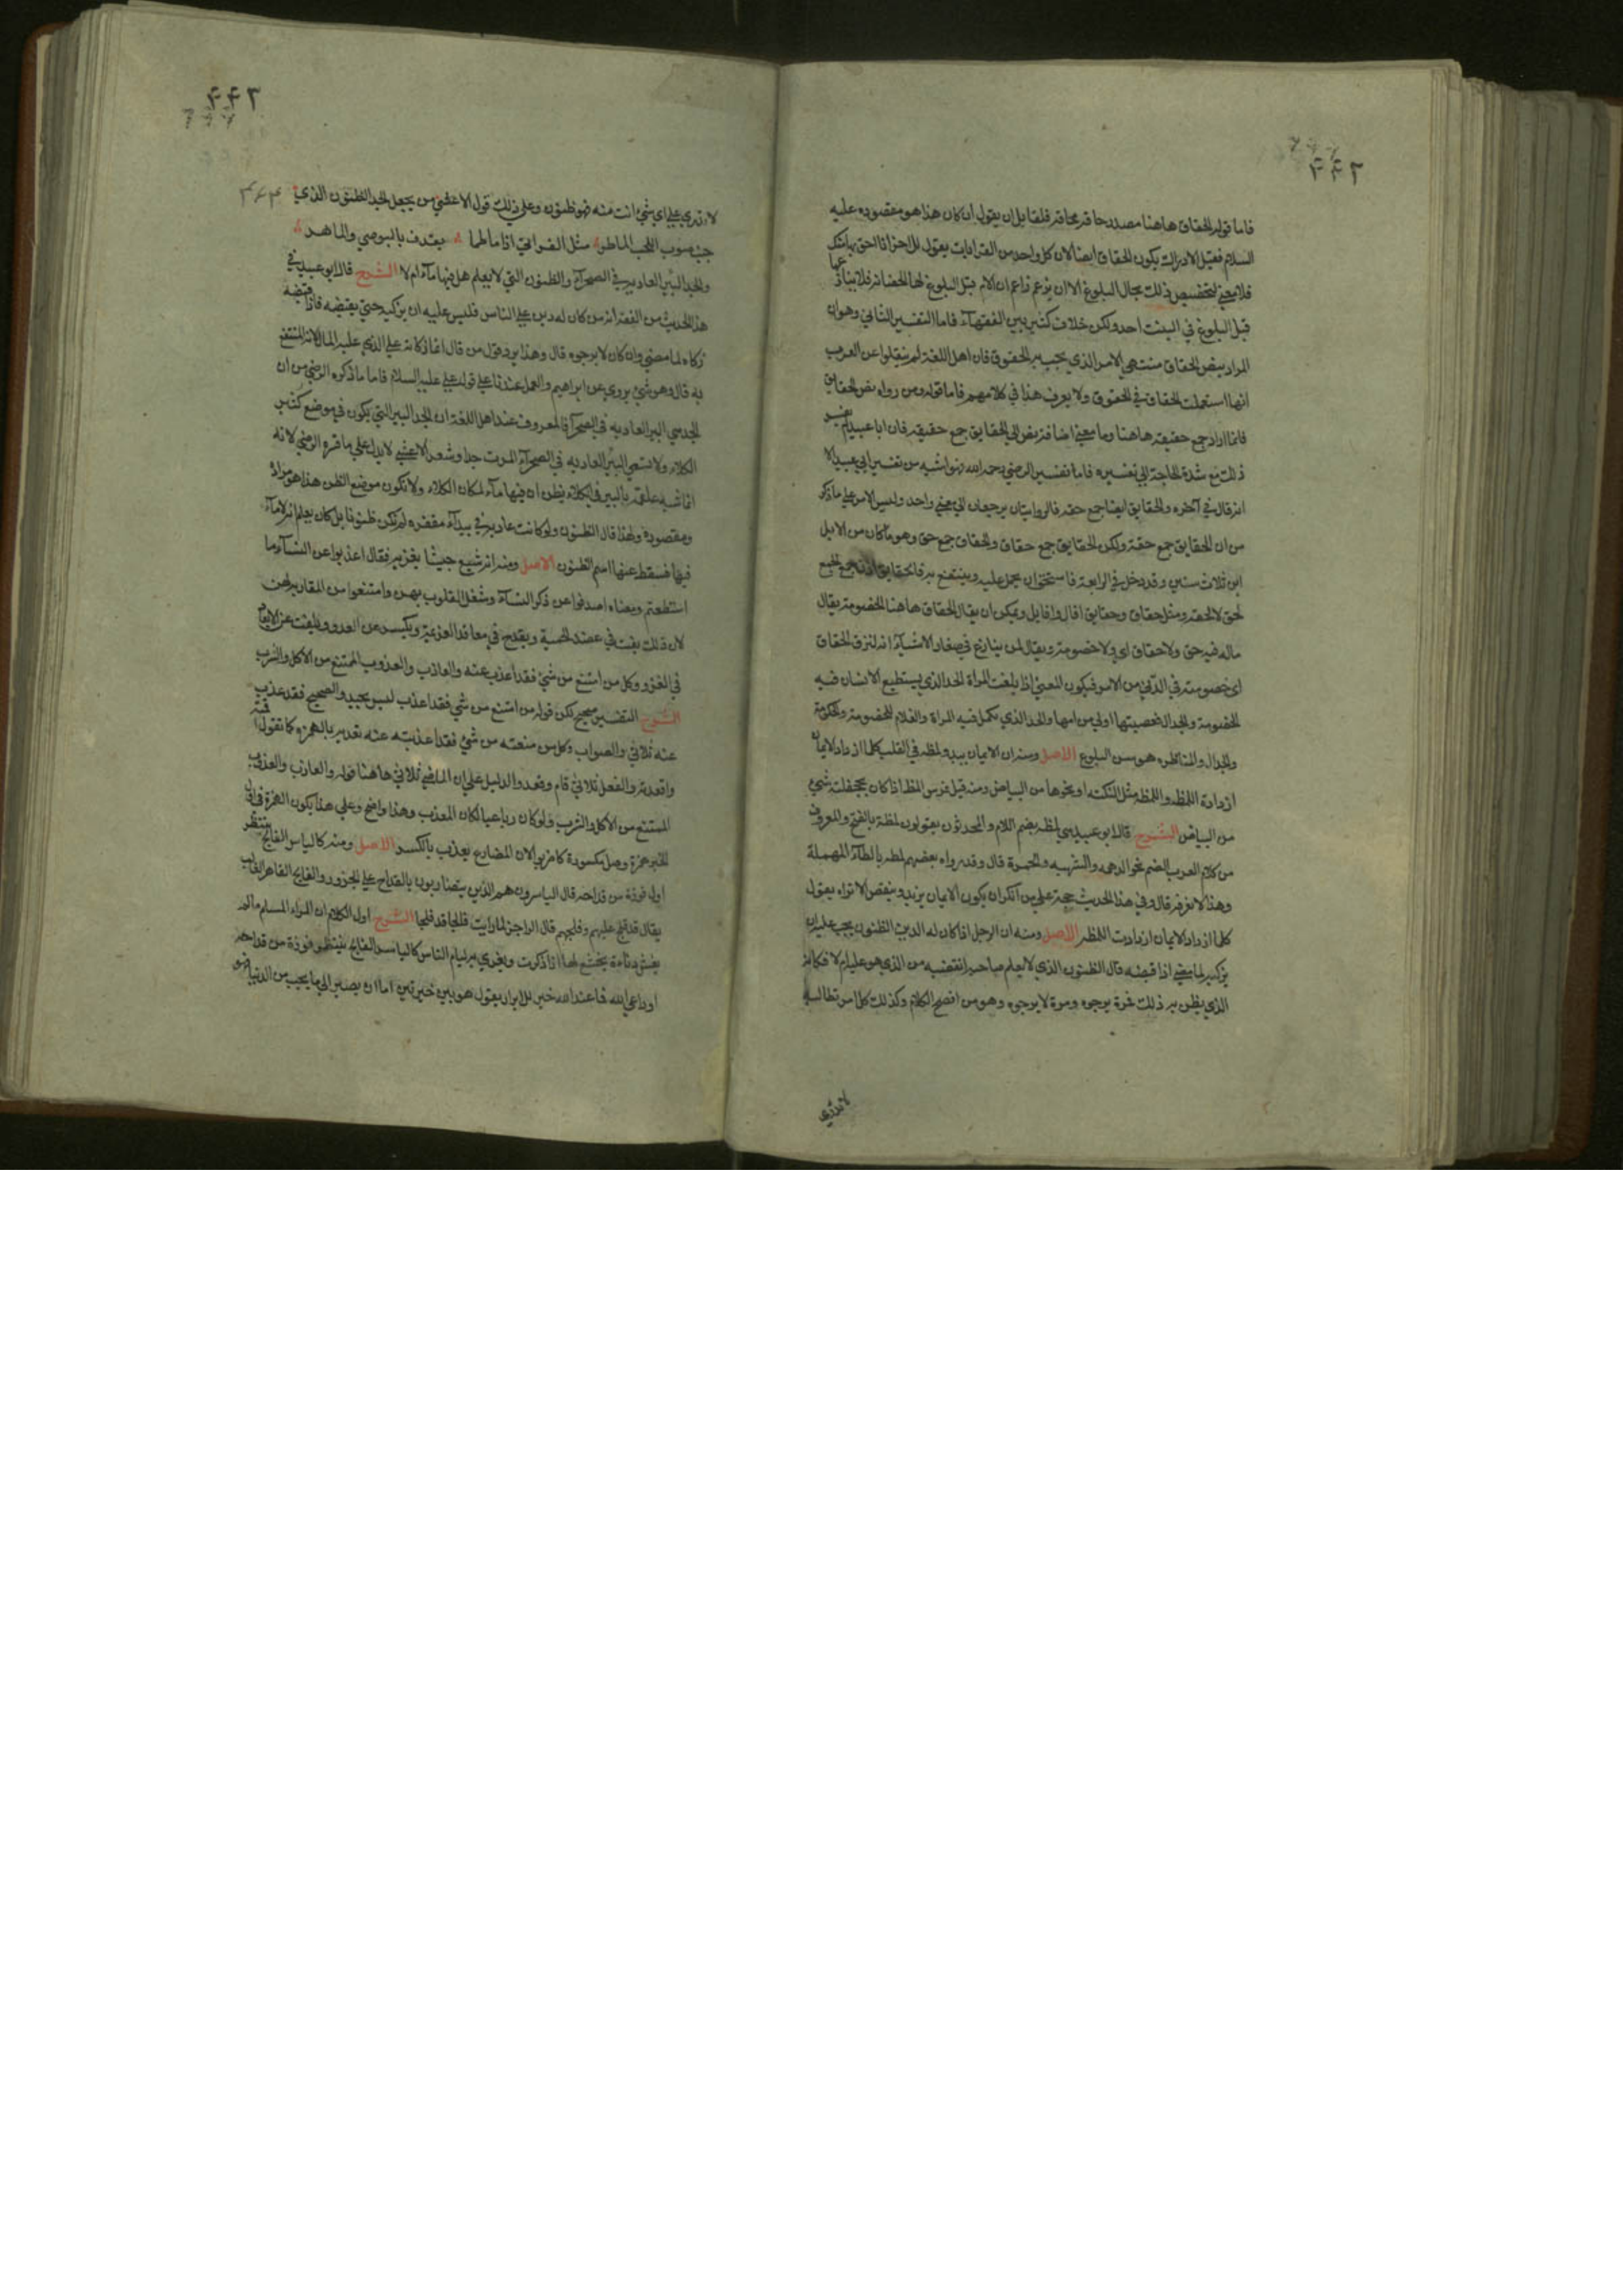 ۴۴۲
فاما قوله الحقاق هاهنا مصدر حاقه يحاقه فلقايل ان يقول ان كان هذا هو مقصوده عليه
السلام فقبل الادراك يكون الحقاق ايضا لان كل واحد من القرابات يقول للاخر انا احق بها منك
فلا معنى لتخصيص ذلك بحال البلوغ الا ان يزعم زاعم ان الام قبل البلوغ لها الحضانة فلا ينازعها
قبل البلوغ في البنت احد ولكن خلاف كثير بين الفقهاء فاما التفسير الثاني وهو ان
المراد بنص الحقاق منتهى الامر الذي تجب به الحقوق فان اهل اللغة لم ينقلوا عن العرب
انها استعملت الحقاق في الحقوق ولا يعرف هذا في كلامهم فاما قوله ومن رواه نص الحقايق
فانما اراد جمع حقيقة هاهنا وما معنى اضافة نص الى الحقايق جمع حقيقة فان ابا عبيد لم يفسر
ذلك مع شدة الحاجة الى تفسيره فاما تفسير الرضي رحمه الله فهو اشبه من تفسير ابي عبيد الا
انه قال في آخره والحقايق ايضا جمع حقه فالروايتان يرجعان الى معنى واحد وليس الامر على ما ذكر
من ان الحقايق جمع حقة ولكن الحقايق جمع حقاق والحقاق جمع حق وهو ما كان من الابل
ابن ثلاث سنين وقد دخل في الرابعة فاستحق ان يحمل عليه وينتفع به فالحقايق اذن جمع الجمع
لحق لا لحقه ومثل حقاق وحقايق افال وافايل ويمكن ان يقال الحقاق هاهنا الخصومة يقال
ماله فيه حق ولا حقاق اي ولا خصومة ويقال لمن ينازع في صغار الاشياء انه لنزق الحقاق
اي خصومته في الدني من الامر فيكون المعنى اذا بلغت المراة الحد الذي يستطيع الانسان فيه
الخصومة والجدال فعصبتها اولى من امها والحد الذي تكمل فيه المراة والغلام للخصومة والحكومة
والجدال والمناظره هو سن البلوغ الاصل ومنه ان الايمان يبدو لمظه في القلب كلما ازداد الايمان
ازدادة اللمظه واللمظه مثل النكته او نحوها من البياض ومنه قيل فرس المظ اذا كان بجحفلته شيء
من البياض الشرح قال ابو عبيد هي لمظه بضم اللام والمحدثون يقولون لمظة بالفتح والمعروف
من كلام العرب الضم نحو الدهمه والشهبه والحمرة قال وقد رواه بعضهم لمطه بالطاء المهملة
وهذا لا نعرفه قال وفي هذا الحديث حجة على من انكر ان يكون الايمان يزيد وينقص الا تراه يقول
كلما ازداد الايمان ازدادت اللمظه الاصل ومنه ان الرجل اذا كان له الدين الظنون يجب عليه ان
يزكيه لما مضى اذا قبضه قال الظنون الذي لا يعلم صاحبه ايقضيه من الذي هو عليه ام لا فكانه
الذي يظن به ذلك فمرة يرجوه ومرة لا يرجوه وهو من افصح الكلام وكذلك كل امر تطالبه
لا تدري
۴۴۳
لا تدري على اي شيء انت منه فهو ظنون وعلى ذلك قول الاعشى من يجعل الجد الظنون الذي
جنب صوب اللجب الماطر مثل الفراتي اذا ما طما يقذف بالبوصي والماهر
والجد البئر العادية في الصحراء والظنون التي لا يعلم هل فيها ماء ام لا الشرح قال ابو عبيد في
هذا الحديث من الفقه انه من كان له دين على الناس فليس عليه ان يزكيه حتى يقبضه فاذا قبضه
زكاه لما مضى وان كان لا يرجوه قال وهذا يرد قول من قال انما زكاته على الذي عليه المال لانه المنتفع
به قال وهو شيء يروي عن ابراهيم والعمل عندنا على قول علي عليه السلام فاما ما ذكره الرضي من ان
الجد هي البر العادية في الصحراء فالمعروف عند اهل اللغة ان الجد البير التي يكون في موضع كثير
الكلاء ولا تسمي البئر العادية في الصحراء الموت جدا وشعر الاعشى لا يدل على ما فسره الرضي لانه
انما شبه علقمة بالبير في الكلاء يظن ان فيها ماء لمكان الكلاء ولا تكون موضع الظن هذا هو مراده
ومقصوده ولهذا قال الظنون ولو كانت عادية في بيداء مقفره لم تكن ظنونا بل كان يعلم انه لا ماء
فيها فسقط عنها اسم الظنون الاصل ومنه انه شيع جيشا يغزيه فقال اعذبوا عن النساء ما
استطعتم ومعناه اصدفوا عن ذكر النساء وشغل القلوب بهن وامتنعوا من المقاربة لهن
لان ذلك يفت في عضد الحمية ويقدح في معاقد العزيمة ويكسر عن العدو ويلفت عن الابعاد
في الغزو وكل من امتنع من شيء فقد اعذب عنه والعاذب والعذوب الممتنع من الاكل والشرب
الشرح التفسير صحيح لكن قوله من امتنع من شي فقد اعذب ليس بجيد والصحيح فقد عذب
عنه ثلاثي والصواب وكل من منعته من شيء فقد اعذبته عنه تعديه بالهمزه كما تقول اقمته
واقعدته والفعل ثلاثي قام وقعد والدليل على ان الماضي ثلاثي هاهنا قوله والعاذب والعذوب
الممتنع من الاكل والشرب ولو كان رباعيا لكان المعذب وهذا واضح وعلى هذا يكون الهمزة في اول
الخبر همزة وصل مكسورة كاضربوا لان المضارع يعذب بالكسر الاصل ومنه كالياسر الفالج ينتظر
اول فوزة من قداحه قال الياسرون هم الذين يتضاربون بالقداح على الجزور والفالج القاهر الغالب
يقال قد فلج عليهم وفلجهم قال الراجز لما رايت فالجا قد فلجا الشرح اول الكلام ان المرء المسلم ما لم
يغش دناءة يخشع لها اذا ذكرت ويغري به ليام الناس كالياسر الفالج ينتظر فوزة من قداحه
او داعي الله فما عند الله خير للابرار يقول هو بين خيرتين اما ان يصير الى ما يحب من الدنيا فهو